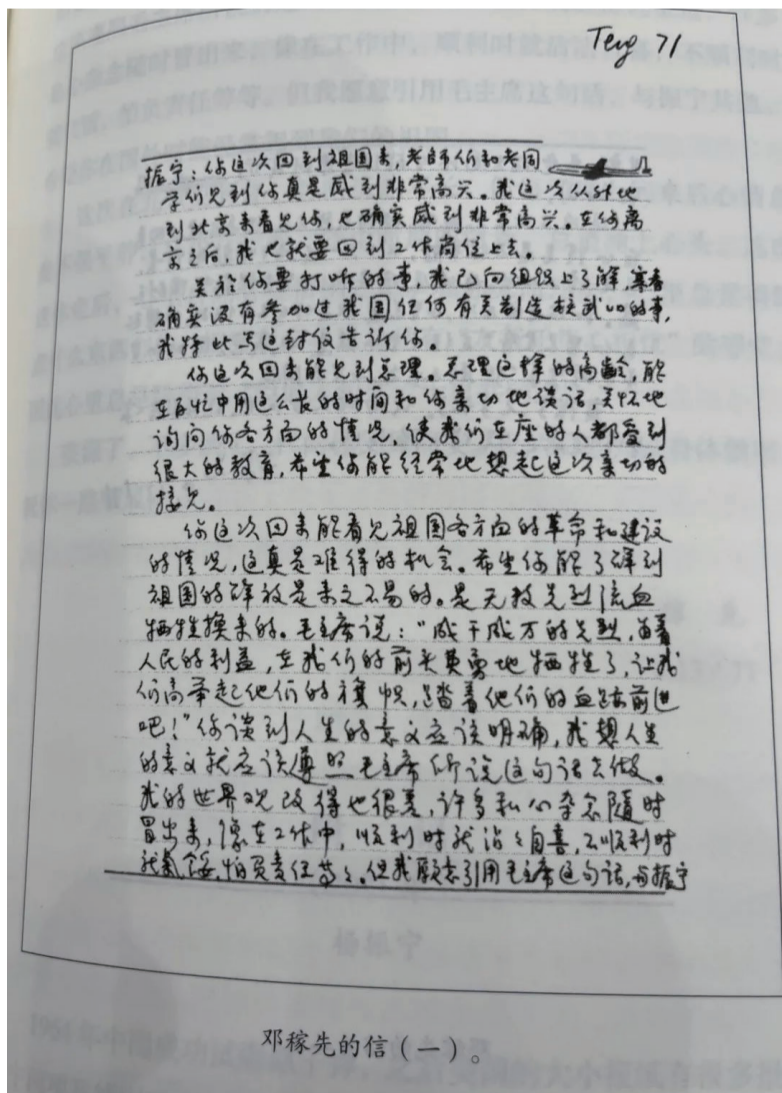 Teng 71
振宁：你这次回到祖国来，老师们和老同
学们见到你真是感到非常高兴。我这次从外地
到北京来看见你，也确实感到非常高兴。在你离
京之后，我也就要回到工作岗位上去。
关於你要打听的事，我已向组织上了解，寒春
确实没有参加过我国任何有关制造核武器的事，
我特此写这封信告诉你。
你这次回来能见到总理。总理这样的高龄，能
在百忙中用这么长的时间和你亲切地谈话，关怀地
询问你各方面的情况，使我们在座的人都受到
很大的教育，希望你能经常地想起这次亲切的
接见。
你这次回来能看见祖国各方面的革命和建设
的情况，这真是难得的机会。希望你能了解到
祖国的解放是来之不易的。是无数先烈流血
牺牲换来的。毛主席说：“成千成万的先烈，为着
人民的利益，在我们的前头英勇地牺牲了，让我
们高举起他们的旗帜，踏着他们的血迹前进
吧！”你谈到人生的意义应该明确，我想人生
的意义就应该遵照毛主席所说这句话去做。
我的世界观改得也很差，许多私心杂念随时
冒出来，像在工作中，顺利时就沾沾自喜，不顺利时
就气馁，怕负责任等等。但我愿意引用毛主席这句话，与振宁
杨振宁
邓稼先的信（一）。